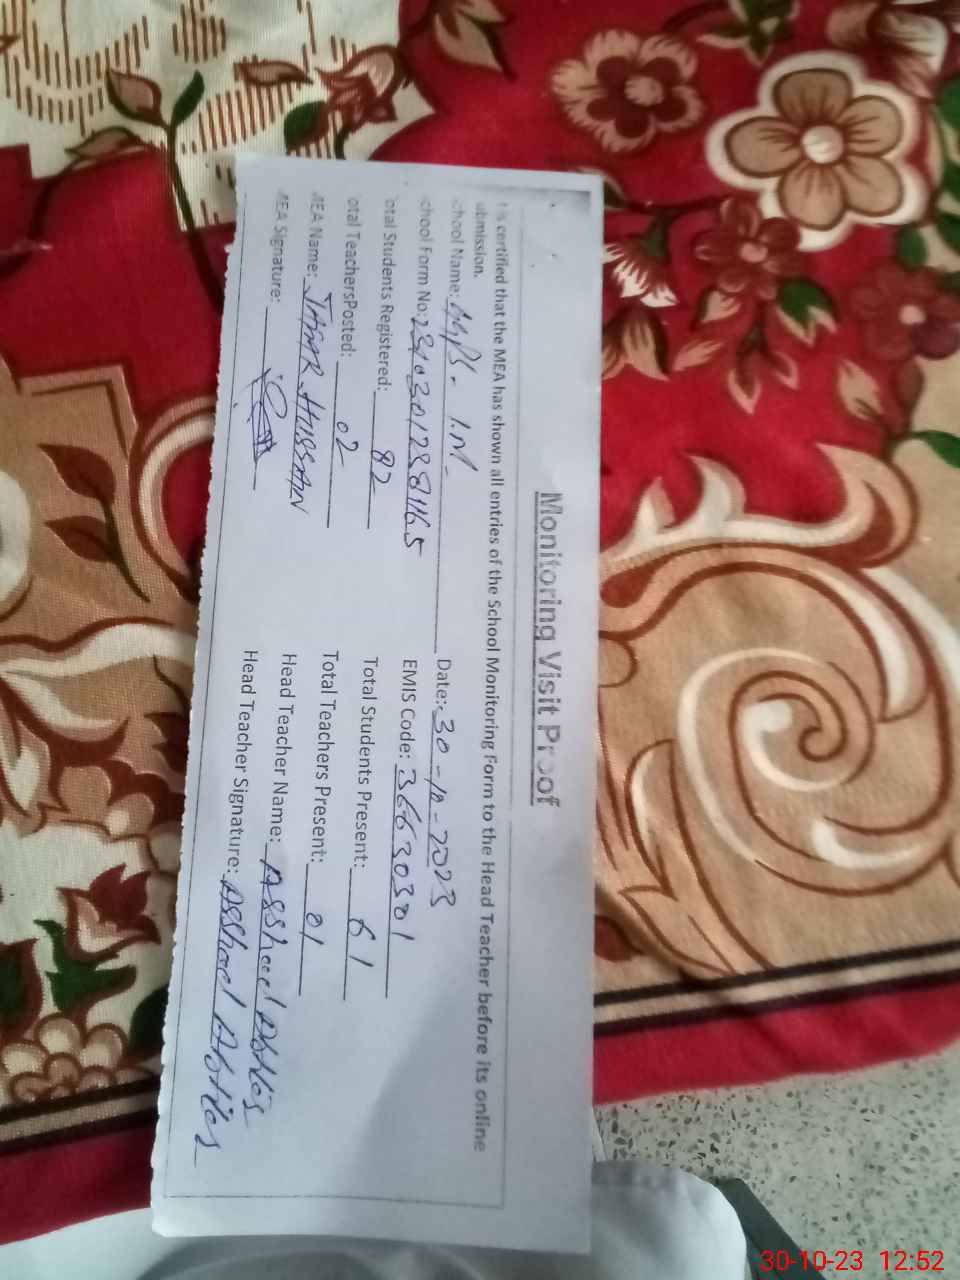 Monitoring Visit Proof
t is certified that the MEA has shown all entries of the School Monitoring Form to the Head Teacher before its online
ubmission.
chool Name: Date:- 30-10-2023
chool Form No: EMIS Code: 36630301
otal Students Registered: 82 Total Students Present: 61
otal TeachersPosted: 02 Total Teachers Present: 01
MEA Name: HUSSAN Head Teacher Name:
MEA Signature: Head Teacher Signature:
30-10-23 12:52